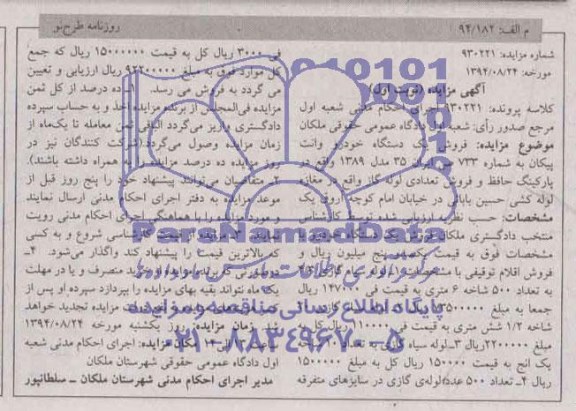 م الف: ۹۴/۱۸۲
روزنامه طرح‌نو
شماره مزایده: ۹۳۰۲۲۱
مورخه: ۱۳۹۴/۰۸/۲۴
آگهی مزایده (نوبت اول)
کلاسه پرونده: ۹۳۰۲۲۱ اجرای احکام مدنی شعبه اول
مرجع صدور رأی: شعبه اول دادگاه عمومی حقوقی ملکان
موضوع مزایده: فروش یک دستگاه خودرو وانت
پیکان به شماره ۷۳۳ ایران ۳۵ مدل ۱۳۸۹ واقع در
پارکینگ حافظ و فروش تعدادی لوله گاز واقع در مغازه
لوله کشی حسین بابائی در خیابان امام کوچه
مشخصات: حسب نظریه ارزیابی شده توسط کارشناس
منتخب دادگستری ملکان فروش یک دستگاه خودرو با
مشخصات فوق به قیمت پنج میلیون ریال و
فروش اقلام توقیفی با مشخصات ۱ـ لوله گازی
به تعداد ۵۰۰ شاخه ۶ متری به قیمت فی ۱۴۷۰۰۰ ریال
جمعا به مبلغ
شاخه ۱/۲ شش متری به قیمت فی ۱۱۰۰۰۰ ریال کل به
مبلغ ریال ۳ـ لوله سیاه
یک انچ به قیمت ۱۵۰۰۰۰ ریال کل به مبلغ ۱۵۰۰۰۰۰
ریال ۴ـ تعداد ۵۰۰ عدد لوله‌ی گازی در سایزهای متفرقه
فی ۳۰۰۰ ریال کل به قیمت ۱۵۰۰۰۰۰۰ ریال که جمع
کل موارد فوق به مبلغ ریال ارزیابی و تعیین
می گردد به فروش می رسد. ۱ـ ده درصد از کل ثمن
مزایده فی‌المجلس از برنده مزایده اخذ و به حساب سپرده
دادگستری واریز می‌گردد الباقی ثمن معامله تا یک‌ماه از
زمان مزایده وصول می‌گردد (شرکت کنندگان نیز در
روز مزایده ده درصد مزایده را به همراه داشته باشند).
۲ـ متقاضیان می‌توانند پیشنهاد خود را پنج روز قبل از
موعد مزایده به دفتر اجرای احکام مدنی ارسال نمایند
و مورد مزایده را با هماهنگی اجرای احکام مدنی رویت
نمایند. ۳ـ مزایده از قیمت کارشناسی شروع و به کسی
که بالاترین قیمت را پیشنهاد کند واگذار می‌شود. ۴ـ
در صورتی که برنده مزایده از خرید منصرف و یا در مهلت
یک ماه نتواند بقیه بهای مزایده را بپردازد سپرده او پس از
مزایده تجدید خواهد
شد. زمان مزایده: روز یکشنبه مورخه ۱۳۹۴/۰۸/۲۴
مکان مزایده: اجرای احکام مدنی شعبه
اول دادگاه عمومی حقوقی شهرستان ملکان
مدیر اجرای احکام مدنی شهرستان ملکان ـ سلطانپور
ParsNamadData
پایگاه اطلاع رسانی مناقصه و مزایده
۰۲۱-۸۸۳۴۹۶۷۰-۵